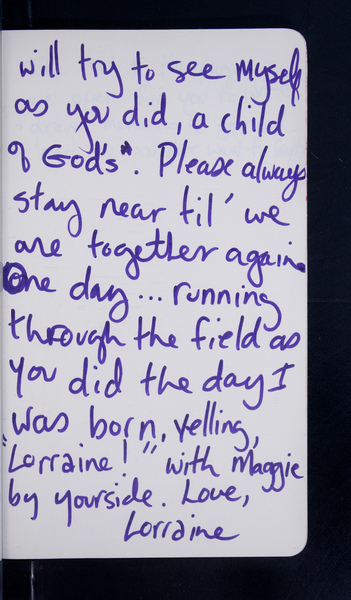 will try to see myself
as you did, a child
of God's". Please always
stay near til' we
are together again.
One day... running
through the field as
you did the day I
was born, yelling,
"Lorraine!" with Maggie
by yourside. Love,
Lorraine